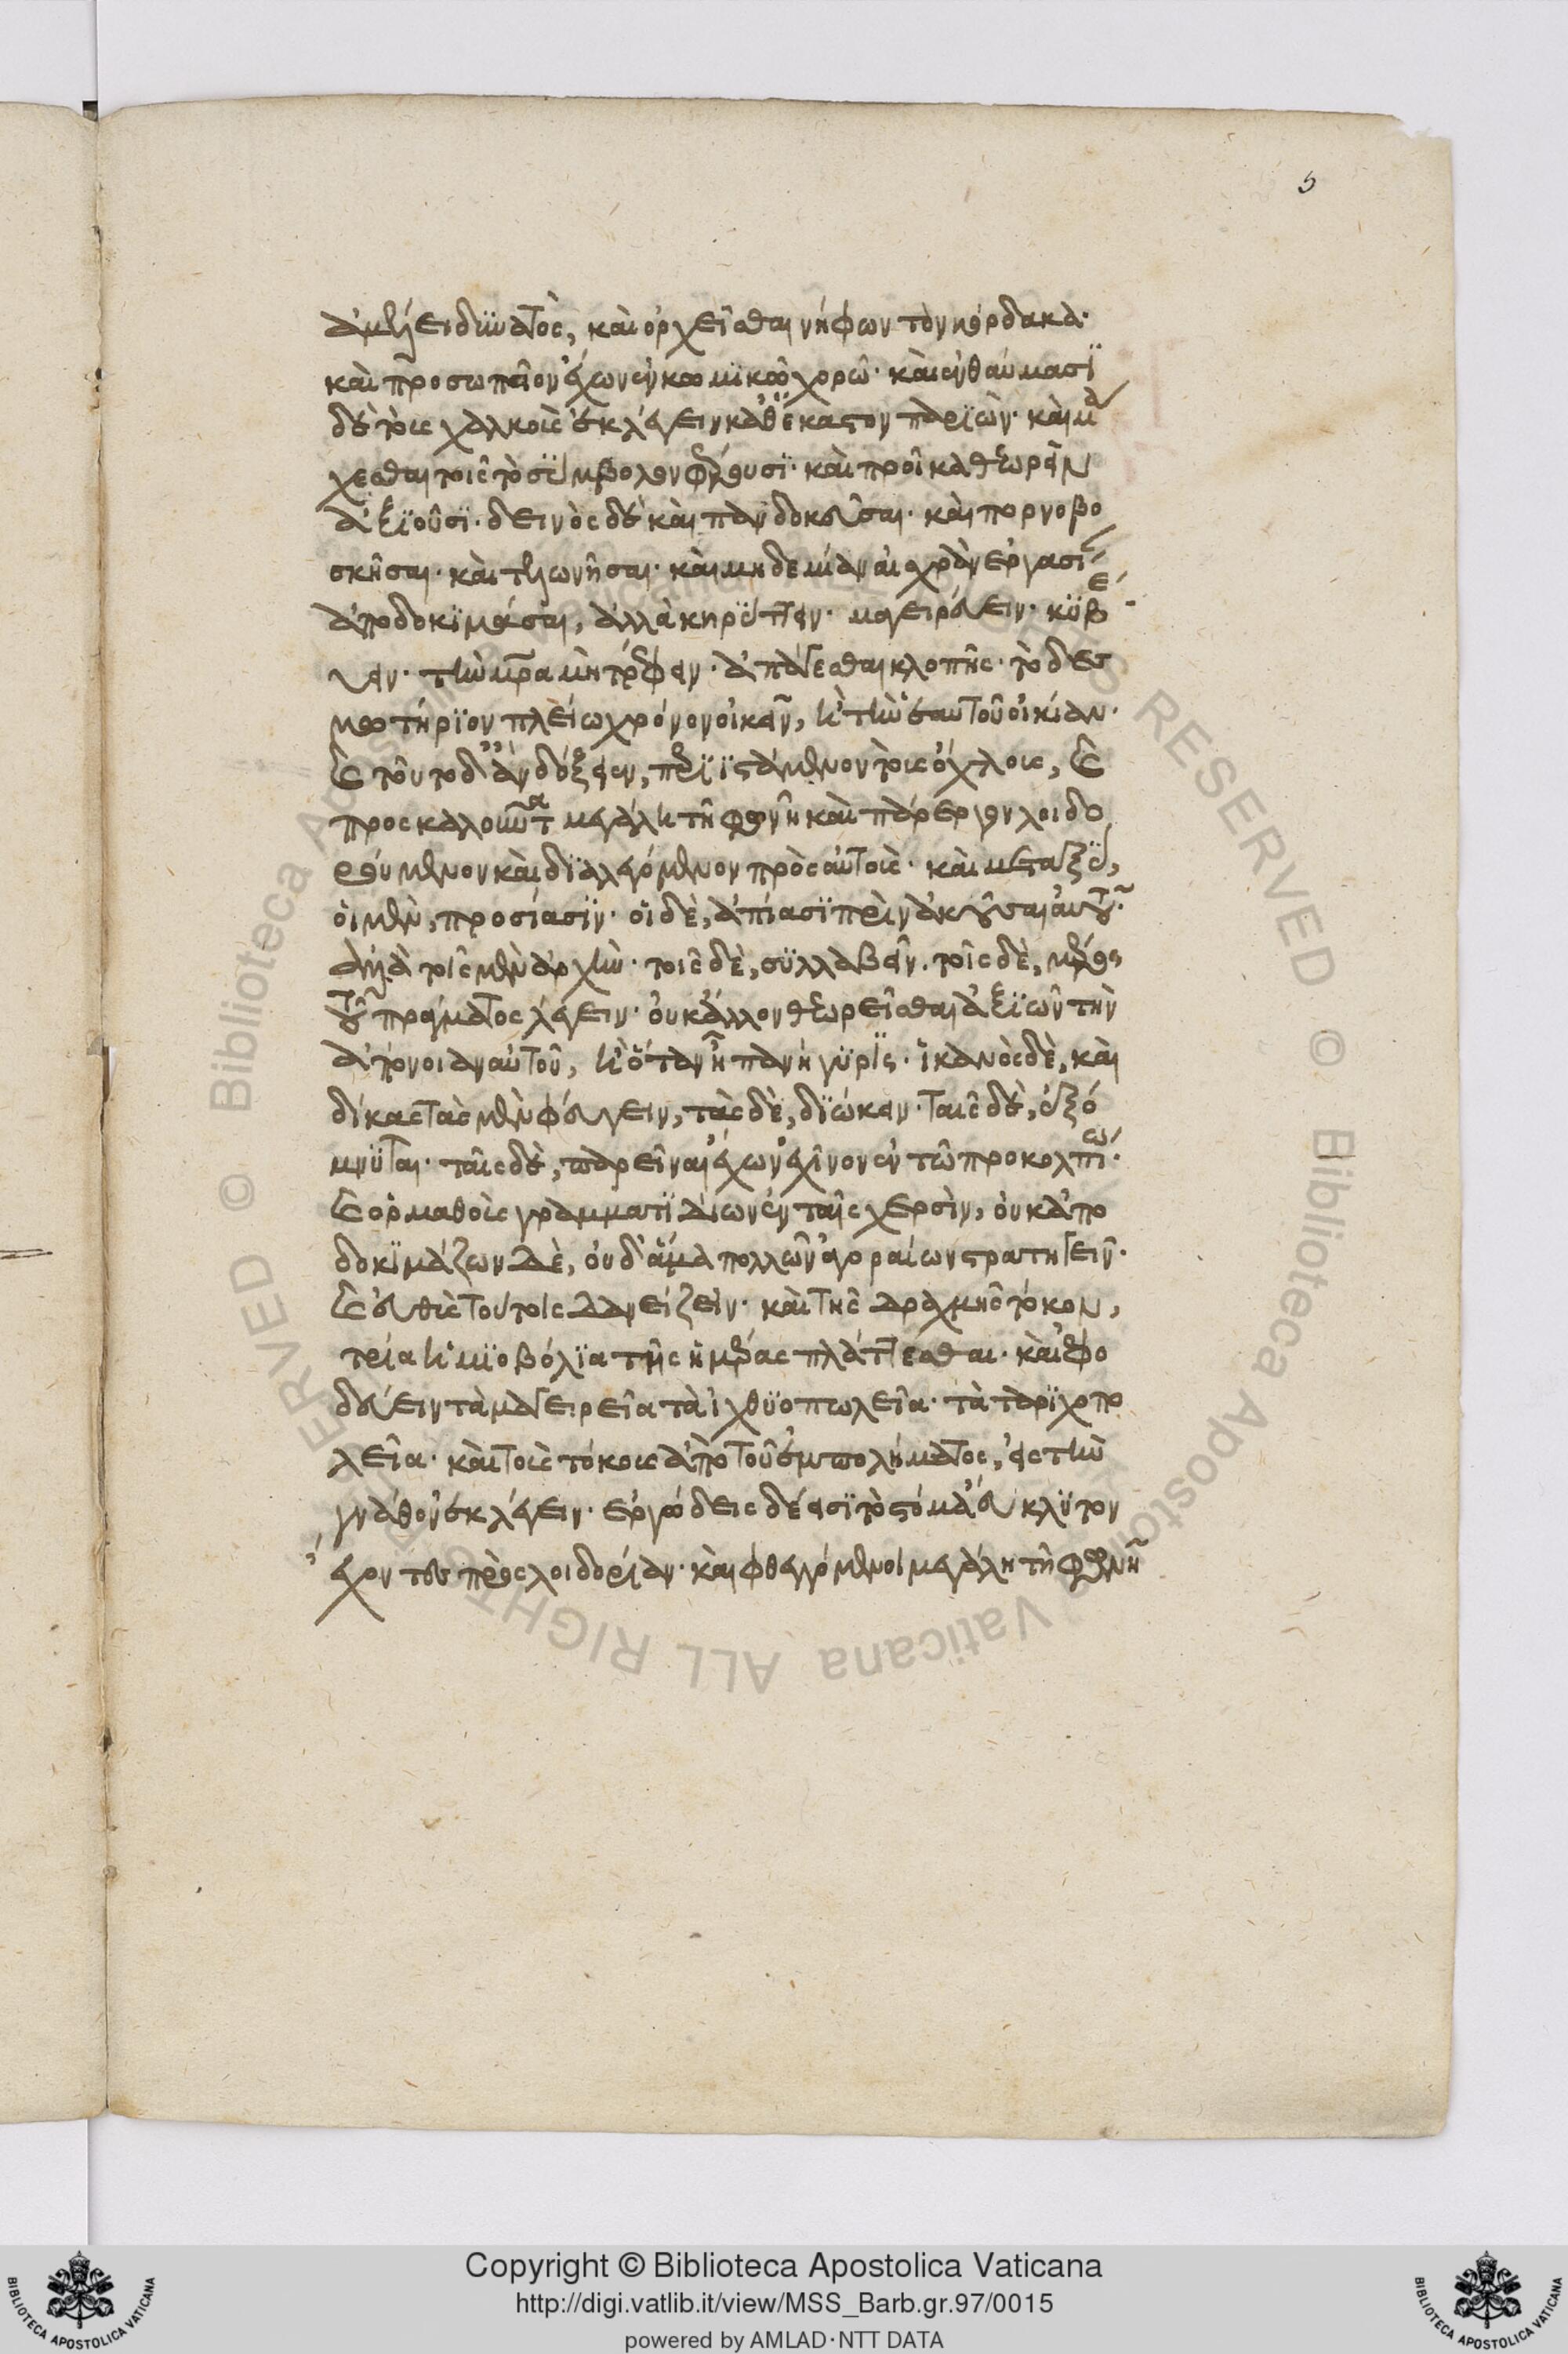 ἀμέλει δυνατὸς, καὶ ὀρχεῖσθαι νήφων τὸν κόρδακα·
καὶ προσωπεῖον ἔχων ἐν κωμικῶ χορῶ· καὶ ἐν θαύμασϊ
δὲ τοὺς χαλκοὺς ἐκλέγειν καθ' ἕκαστον παρϊὼν· καὶ μά
χεσθαι τοῖς τὸ σύμβολον φέρουσϊ· καὶ προῖκα θεωρεῖν
ἀξϊοῦσϊ· δεινὸς δὲ καὶ πανδοκεῦσαι· καὶ πορνοβο
σκῆσαι· καὶ τελωνῆσαι· καὶ μηδεμίαν αἰσχρὰν ἐργασίαν
ἀποδοκϊμάσαι, ἀλλὰ κηρύττειν· μαγειρεύειν· κϋβε
ύειν· τὴν μητέρα μὴ τρέφειν· ἀπάγεσθαι κλοπῆς· τὸ δεσ
μωτήρϊον πλείω χρόνον οἰκεῖν, ἢ τὴν ἑαυτοῦ οἰκίαν·
καὶ τοῦτο δ' ἂν δόξειεν, περϊϊστάμενον τοὺς ὄχλους, καὶ
προσκαλοῦντα μεγάλη τῆ φωνῆ καὶ πάρεργον λοιδο
ρούμενον καὶ δϊαλεγόμενον πρὸς αὐτοὺς· καὶ μεταξὺ,
οἱ μὲν, προσίασϊν· οἱ δὲ, ἀπίασϊ πρὶν ἀκοῦσαι αὐτοῦ·
ἀλλὰ τοῖς μὲν ἀρχὴν· τοῖς δὲ, σϋλλαβεῖν· τοῖς δὲ, μέρος
τοῦ πράγματος λέγειν· οὐκ ἄλλον θεωρεῖσθαι ἀξϊῶν τὴν
ἀπόνοιαν αὐτοῦ, ἢ ὅταν ἦ πανήγϋρϊς· ἱκανὸς δὲ, καὶ
δίκας τὰς μὲν φεύγειν, τὰς δὲ, δϊώκειν· ταῖς δὲ, ἐξό
μνϋται· ταῖς δὲ, παρεῖναι ἔχων ἐχῖνον ἐν τῶ προκολπίω·
καὶ ὁρμαθοὺς γραμματϊδίων ἐν ταῖς χερσὶν, οὐκ ἀπο
δοκϊμάζων δὲ, οὐδ' ἅμα πολλῶν ἀγοραίων στρατηγεῖν·
καὶ εὐθὺς τούτοις δανείζειν· καὶ τῆς δραχμῆς τόκον,
τρία ἡμϊοβόλϊα τῆς ἡμέρας πλάττεσθαι· καὶ ἐφο
δεύειν τὰ μαγειρεῖα τὰ ἰχθϋοπωλεῖα· τὰ ταρϊχοπω
λεῖα· καὶ τοὺς τόκους ἀπὸ τοῦ ἐμπολήματος, εἰς τὴν
γνάθον ἐκλέγειν· ἐργώδεις δέ εἰσϊ τὸ στόμα εὔκλϋτον
ἔχοντες πρὸς λοιδορίαν· καὶ φθεγγόμενοι μεγάλη τῆ φωνῆ
5
Copyright © Biblioteca Apostolica Vaticana
http://digi.vatlib.it/view/MSS_Barb.gr.97/0015
powered by AMLAD·NTT DATA